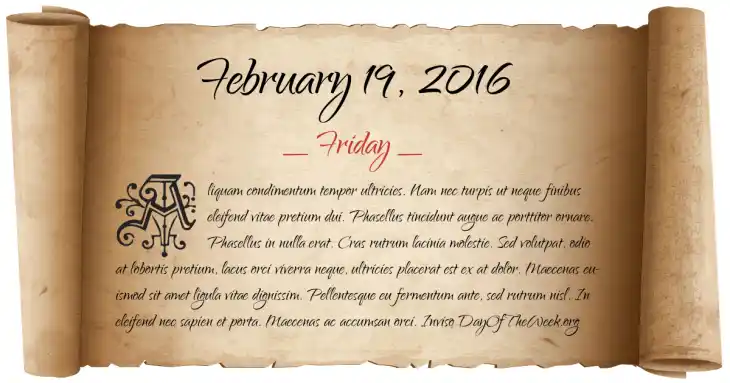 February 19, 2016
_ Friday _
Aliquam condimentum tempor ultricies. Nam nec turpis ut neque finibus
eleifend vitae pretium dui. Phasellus tincidunt augue ac porttitor ornare.
Phasellus in nulla erat. Cras rutrum lacinia molestie. Sed volutpat, odio
at lobortis pretium, lacus orci viverra neque, ultricies placerat est ex at dolor. Maecenas eu-
ismod sit amet ligula vitae dignissim. Pellentesque eu fermentum ante, sed rutrum nisl. In
eleifend nec sapien et porta. Maecenas ac accumsan orci. Invisq DayOfTheWeek.org